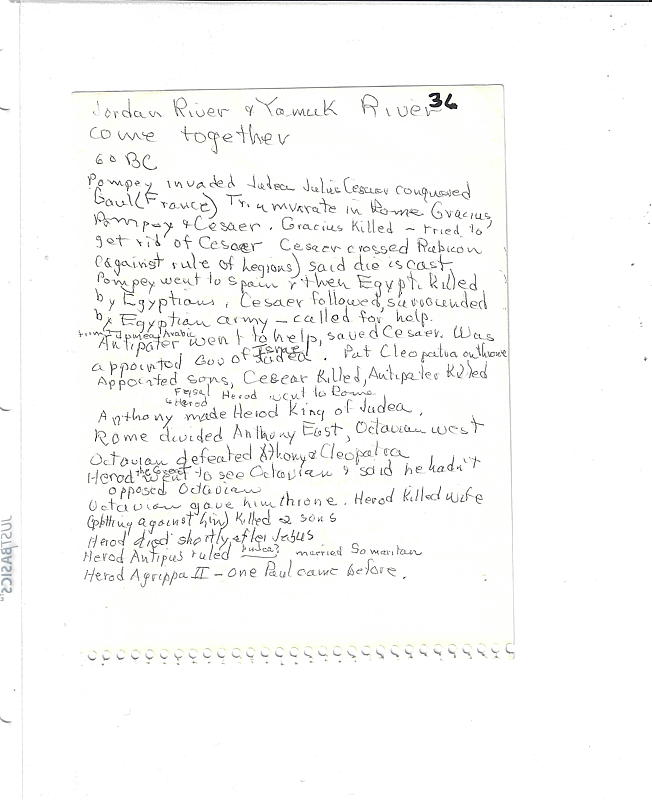 34
Jordan River & Yamuk River
come together
60 BC
Pompey invaded Judea Julius Cesaer conquered
Gaul (France) Triumvarate in Rome Gracius,
Pompey & Cesaer. Gracius Killed – tried to
get rid of Cesaer Cesaer crossed Rubicon
(against rule of legions) said die is cast
Pompey went to Spain & then Egypt. Killed
by Egyptians, Cesaer followed, surrounded
by Egyptian army – called for help.
from Idumea Arabic
Antipater went to help, saved Cesaer. Was
Israel
appointed Gov of Judea. Put Cleopatra on throne
Appointed sons, Cesear Killed, Antipater Killed
Herod went to Rome
& Herod
Anthony made Herod King of Judea.
Rome divided Anthony East, Octavian west
Octavian defeated Athony & Cleopatra
the Great
Herod went to see Octavian & said he hadn't
opposed Octavian
Octavian gave him throne. Herod Killed wife
(plotting against him) Killed 2 sons
Herod died shortly after Jesus
Herod Antipus ruled Judea? married Somaritan
Herod Agrippa II – one Paul came before.
JUST BASICS